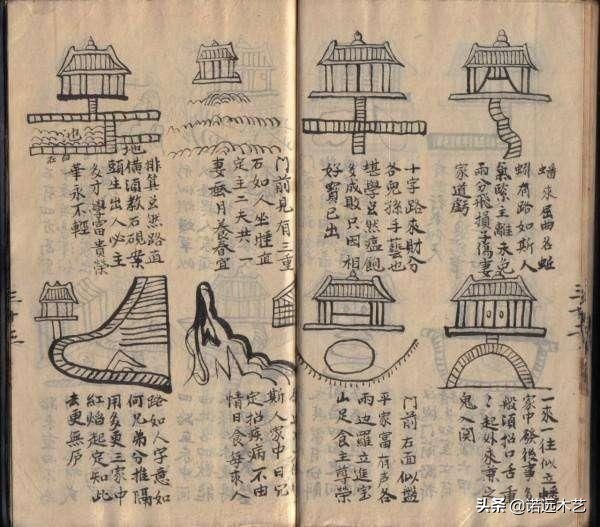 來屈曲名蚯
蚓有路如斯人
氣緊主離未免
兩分飛損子傷妻
家道虧
十字路來財分
各兒孫手藝也
堪學虽然温飽
多成敗只因相
好寶已出
一來一往似立
家中發後事多
般須招口舌重
起外來兼之
鬼入関
門前石面似盤
平家富有声名
兩邊羅立進寶
山足食主尊榮
門前見有三重
石如人坐睡直
定主二夫共一
妻蚕月養春宜
排算虽然路
教石硯案
頭生出人必主
多才學富貴榮
華永不輕
斯人家中日
定招疾病不由
情日食每求人
路如人字意如
何兄弟分推隔
用多更三家中
紅焰起定知此
去更無
头条 @诺远木艺